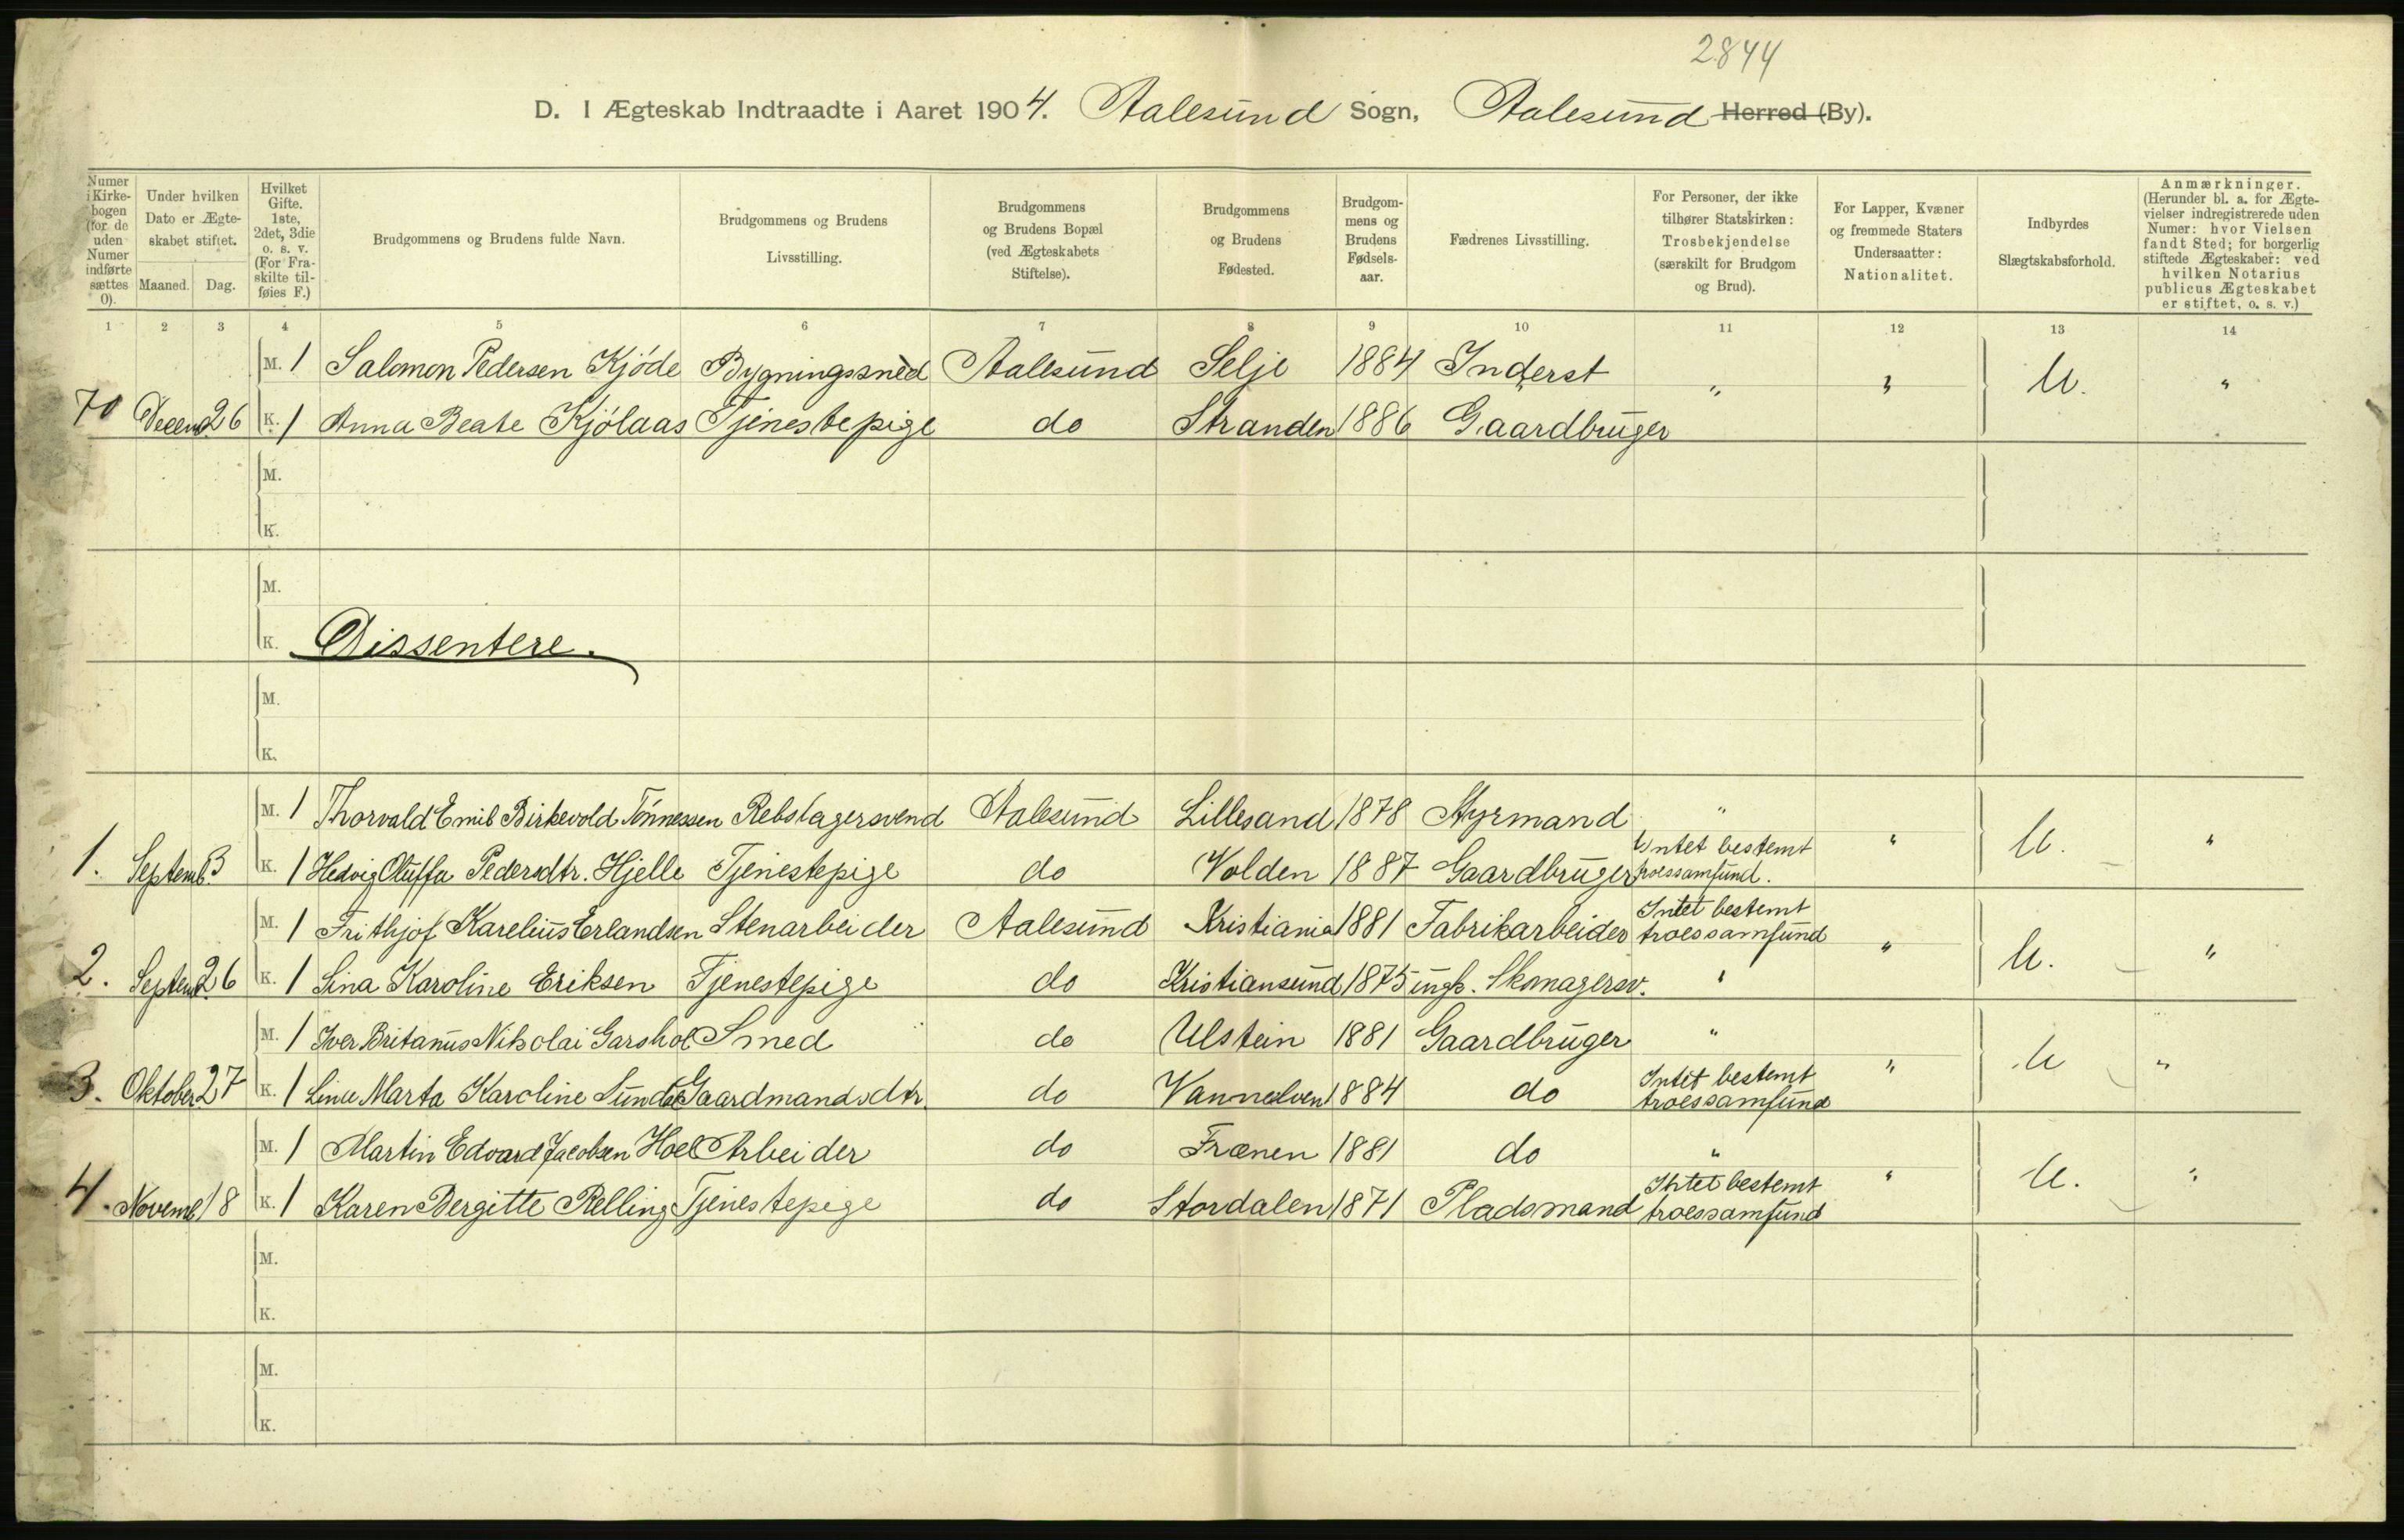 2844
D. I Ægteskab Indtraadte i Aaret 1904. Aalesund Sogn, Aalesund Herred (By).
Numer i Kirkebogen (for de uden Numer indførte sættes 0).
Under hvilken Dato er Ægteskabet stiftet.
Maaned. Dag.
Hvilket Gifte. 1ste, 2det, 3die o. s. v. (For Fraskilte tilføies F.)
Brudgommens og Brudens fulde Navn.
Brudgommens og Brudens Livsstilling.
Brudgommens og Brudens Bopæl (ved Ægteskabets Stiftelse).
Brudgommens og Brudens Fødested.
Brudgommens og Brudens Fødselsaar.
Fædrenes Livsstilling.
For Personer, der ikke tilhører Statskirken: Trosbekjendelse (særskilt for Brudgom og Brud).
For Lapper, Kvæner og fremmede Staters Undersaatter: Nationalitet.
Indbyrdes Slægtskabsforhold.
Anmærkninger. (Herunder bl. a. for Ægtevielser indregistrerede uden Numer: hvor Vielsen fandt Sted; for borgerlig stiftede Ægteskaber: ved hvilken Notarius publicus Ægteskabet er stiftet, o. s. v.)
1 2 3 4 5 6 7 8 9 10 11 12 13 14
M. 1 Salomon Pedersen Kjøde Bygningssned Aalesund Selje 1884 Inderst " " U. "
70 Decemb. 26 K. 1 Anna Beate Kjølaas Tjenestepige do Stranden 1886 Gaardbruger
M.
K.
M.
K. Dissentere.
M.
K.
M. 1 Thorvald Emil Birkevold Tönnessen Rebslagersvend Aalesund Lillesand 1878 Styrmand " " U. "
1. Septemb. 3 K. 1 Hedvig Oluffa Pedersdtr. Hjelle Tjenestepige do Volden 1887 Gaardbruger Intet bestemt troessamfund.
M. 1 Frithjof Karelius Erlandsen Stenarbeider Aalesund Kristiania 1881 Fabrikarbeider Intet bestemt troessamfund " U. "
2. Septemb. 26 K. 1 Lina Karoline Eriksen Tjenestepige do Kristiansund 1875 ingb. Skomagersv. "
M. 1 Iver Britanus Nikolai Garshol Smed do Ulstein 1881 Gaardbruger " " U "
3. Oktober 27 K. 1 Lina Marta Karoline Sundal Gaardmandsdtr. do Vannelven 1884 do Intet bestemt troessamfund
M. 1 Martin Edvard Jacobsen Hoel Arbeider do Frænen 1881 do " " U. "
4. Novemb. 18 K. 1 Karen Bergitte Relling Tjenestepige do Stordalen 1871 Pladsmand Intet bestemt troessamfund
M.
K.
M.
K.